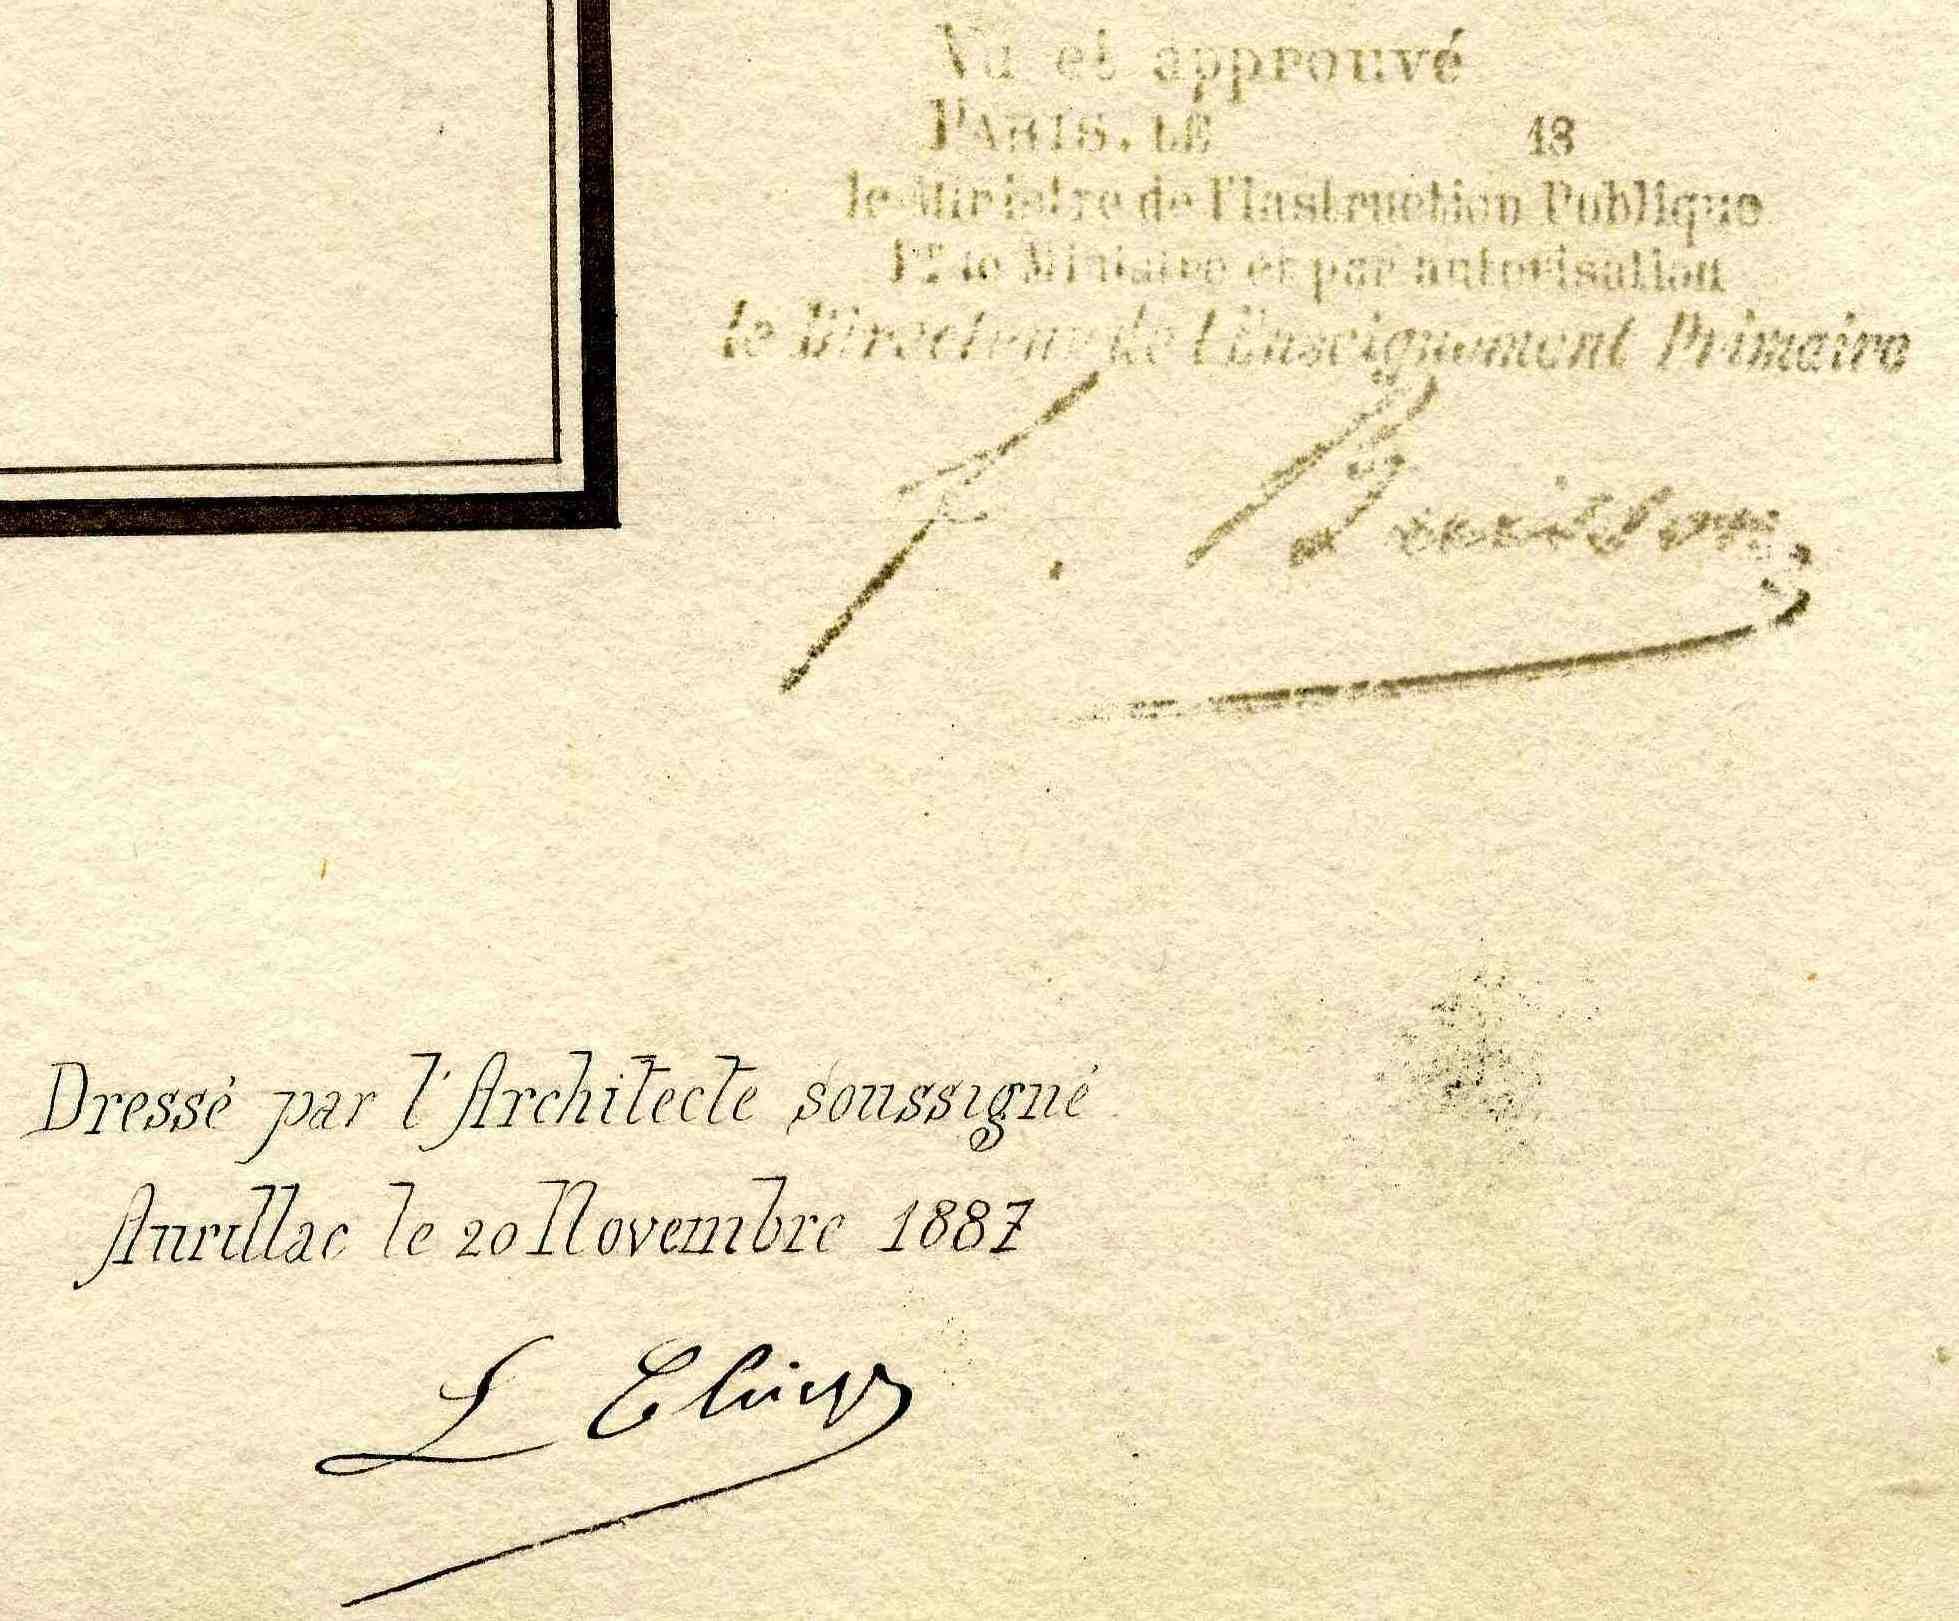 Vu et approuvé
PARIS, LE 18
le Ministre de l'Instruction Publique
Pr le Ministre et par autorisation
le Directeur de l'Enseignement Primaire
F. Buisson
Dressé par l'Architecte soussigné
Aurillac le 20 Novembre 1887
L